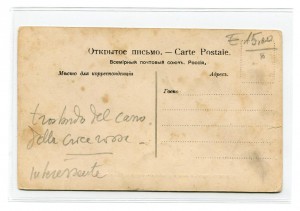 Открытое письмо. — Carte Postale.
Всемірный почтовый союзъ. Россія.
Мѣсто для корреспонденціи
Адресъ.
£ 15,00
del carro
della croce rossa
interessante